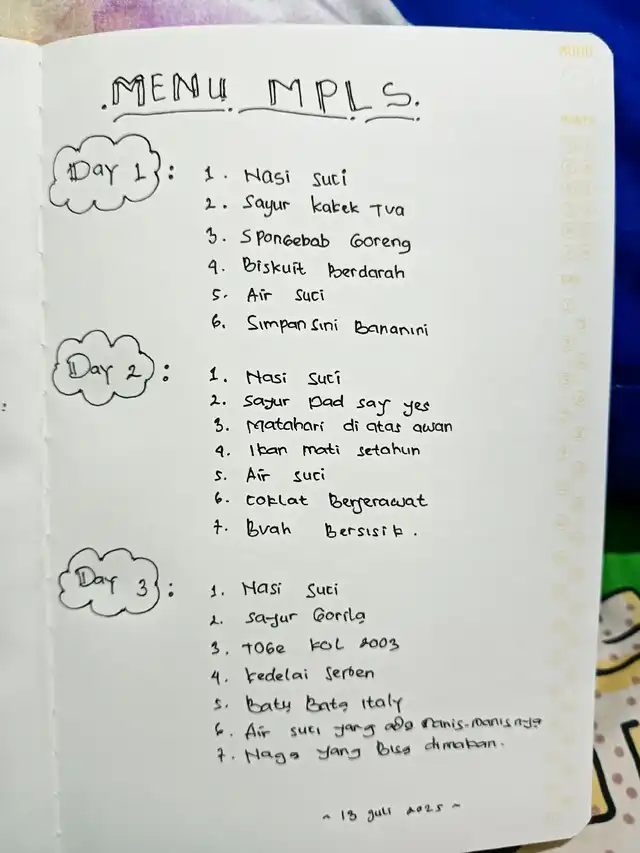 MENU MPLS.
Day 1 : 1. Nasi Suci
2. Sayur kakek Tua
3. Spongebab Goreng
4. Biskuit Berdarah
5. Air Suci
6. Simpan Sini Bananini
Day 2 : 1. Nasi Suci
2. Sayur pad say yes
3. Matahari di atas awan
4. Ikan mati setahun
5. Air suci
6. Coklat Berjerawat
7. Buah Bersisik.
Day 3 : 1. Nasi Suci
2. Sayur Gorila
3. TOGE KOL 2003
4. Kedelai Serben
5. Batu Bata Italy
6. Air suci yang ada manis-manisnya
7. Naga yang bisa dimakan.
~ 13 Juli 2025 ~